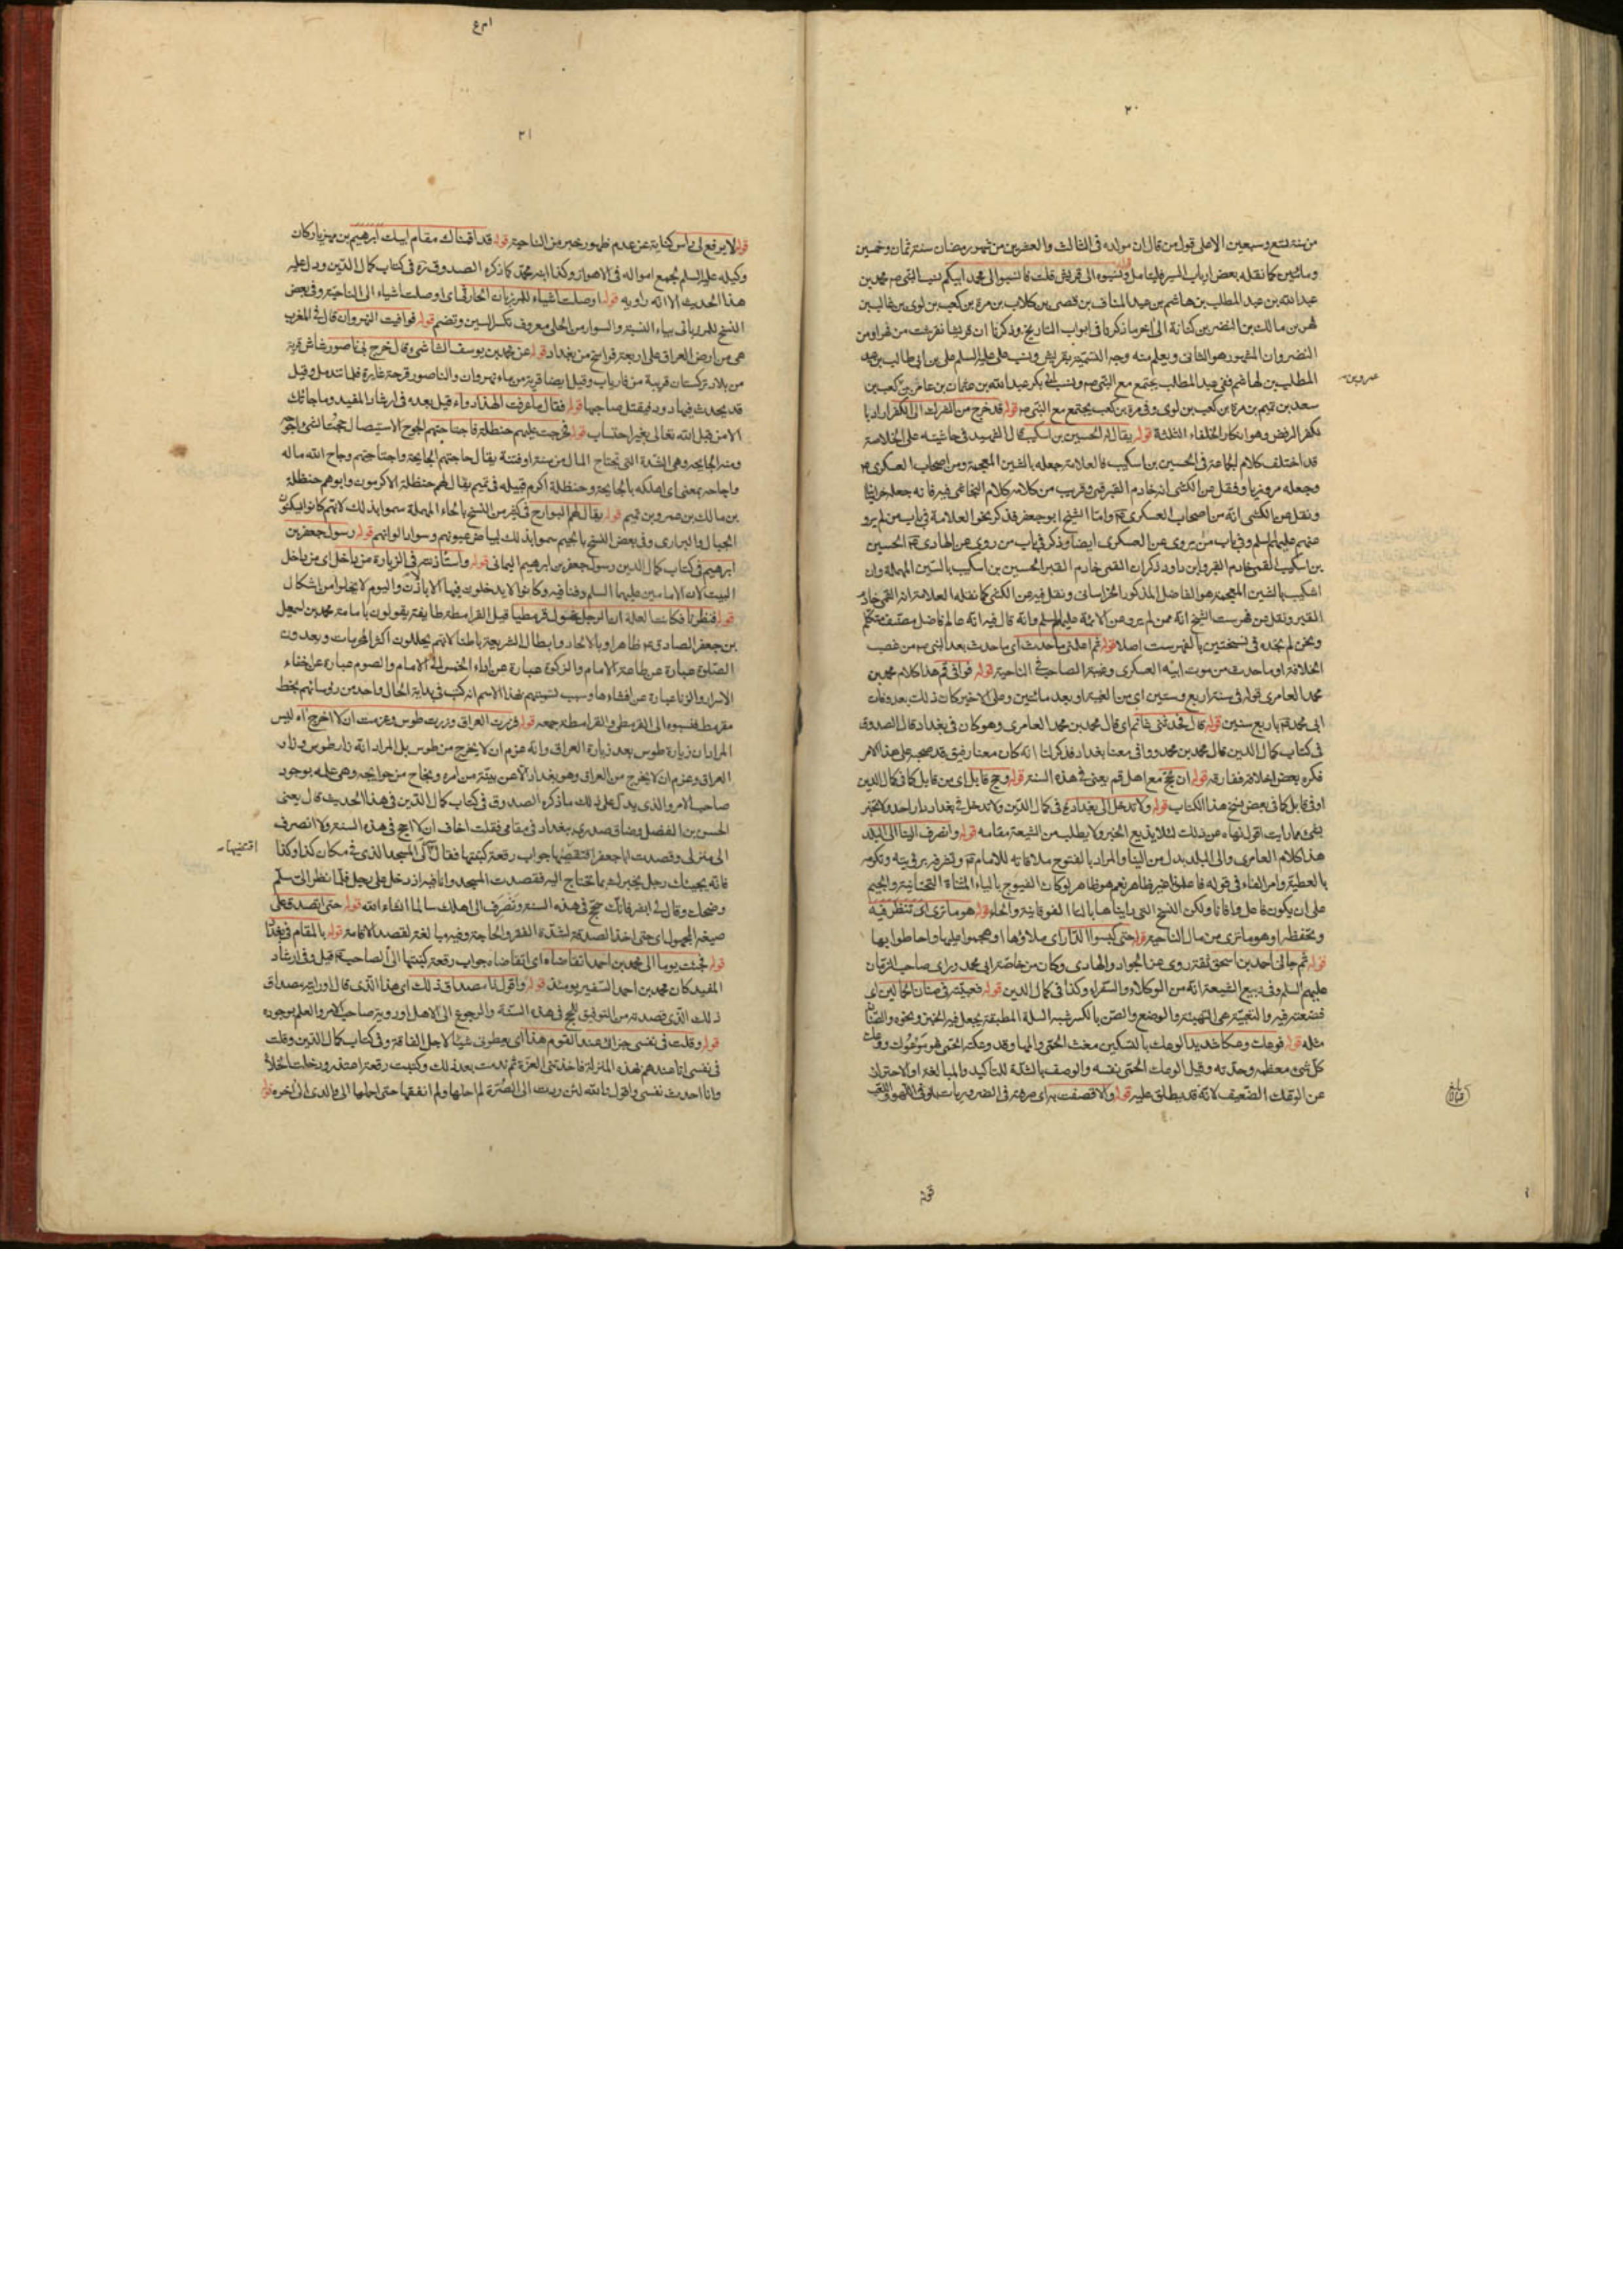 ٢٠
من سنة تسع وسبعين الا على قول من قال ان مولده فى الثالث والعشرين من شهر رمضان سنة ثمان وخمسين
ومائتين كما نقله بعض ارباب السير قوله الى قريش قلت فانسبوا الى محمد ابيكم نسب النبى ص محمد بن
عبد الله بن عبد المطلب بن هاشم بن عبد المناف بن قصى بن كلاب بن مرة بن كعب بن لوى بن غالب بن
فهر بن مالك بن النضر بن كنانة الى آخر ما ذكرنا فى ابواب التاريخ وذكرنا ان قريشا تقرشت من فهر او من
النضر وان المشهور هو الثانى ويعلم منه وجه التسمية بقريش ونسب على عليه السلم على بن ابى طالب بن عبد
المطلب بن هاشم ففى عبد المطلب يجتمع مع النبى ص ونسب ابى بكر عبد الله بن عثمان بن عامر بن كعب بن
عمرو بن
سعد بن تيم بن مرة بن كعب بن لوى وفى مرة بن كعب يجتمع مع النبى ص قوله قد خرج من الشرك الى الكفر اراد با
لكفر الرفض وهو انكار الخلفاء الثلثة قوله يقال له الحسين بن اسكيب قال الشهيد فى حاشيته على الخلاصة
قد اختلف كلام الجماعة فى الحسين بن اسكيب فالعلامة جعله بالشين المعجمة ومن اصحاب العسكرى ع
وجعله مروزيا ونقل عن الكشى انه خادم القبر قمى وقريب من كلامه كلام النجاشى فيه فانه جعله خراسانيا
ونقل عن الكشى انه من اصحاب العسكرى ع واما الشيخ ابو جعفر فذكر نحو العلامة فى باب من لم يرو
عنهم عليهم السلم وفى باب من يروى عن العسكرى ايضا وذكر فى باب من روى عن الهادى ع الحسين
بن اسكيب القمى خادم القبر وابن داود ذكر ان القمى خادم القبر الحسين بن اسكيب بالسين المهملة وان
اشكيب بالشين المعجمة هو الفاضل المذكور الخراسانى ونقل فيه عن الكشى كما نقله العلامة انه القمى خادم
القبر ونقل عن فهرست الشيخ انه ممن لم يرو عن الائمة عليهم السلم وانه قال فيه انه عالم فاضل مصنف متكلم
ونحن لم نجده فى نسختين بالفهرست اصلا قوله ثم اعلمنى ما حدث اى ما حدث بعد النبى ص من غصب
الخلافة او ما حدث من موت ابيه العسكرى وغيبة الصاحب ع الناحية قوله فوافى قم هذا كلام محمد بن
محمد العامرى قوله فى سنة اربع وستين اى من الغيبة او بعد مائتين وعلى الاخير كان ذلك بعد وفات
ابى محمد ع باربع سنين قوله قال فحدثنى غانم اى قال محمد بن محمد العامرى وهو كان فى بغداد قال الصدوق
فى كتاب كمال الدين قال محمد بن محمد ووافى معنا بغداد فذكر لنا انه كان معنا رفيق قد صحبه على هذا الامر
فكره بعض اخلاقه ففارقه قوله ان تحج مع اهل قم يعنى فى هذه السنة قوله وحج قابل اى من قابل كما فى كمال الدين
او فى قابل كما فى بعض نسخ هذا الكتاب قوله ولا تدخل الى بغداد فى كمال الدين ولا تدخل فى بغداد دار احد ولا تخبر
بشئ مما رايت اقول نهاه عن ذلك لئلا يذيع الخبر ولا يطلب من الشيعة مقامه قوله وانصرف الينا الى البلد
هذا كلام العامرى والى البلد بدل من الينا والمراد بالفتوح ملاقاته للامام ع
بالعطية وامر الفاء فى قوله فاعلمونا غير ظاهر نعم هو ظاهر لو كان الفيوج بالياء المثناة التحتانية والجيم
على ان يكون فاعل وافانا ولكن النسخ التى رايناها بالتاء الفوقانية والحاء قوله هو ما ترى اى تنظر فيه
وتحفظه او هو ما ترى من مال الناحية قوله حتى كبسوا الدار اى ملاؤها او هجموا عليها واحاطوا بها
قوله ثم جائنى احمد بن اسحق ثقة روى عن الجواد والهادى وكان من خاصة ابى محمد وراى صاحب الزمان
عليهم السلم وفى ربيع الشيعة انه من الوكلاء والسفراء وكذا فى كمال الدين قوله فعبيته فى صنان الحمالين اى
فضعته فيه والتعبية هى التهيئة والوضع والصن بالكسر شبه السلة المطبقة يجعل فيه الخبز ونحوه والصنان
مثله قوله فوعك وعكا شديدا الوعك بالتسكين مغث الحمى والمها وقد وعكته الحمى فهو موعوك ووعك
كل شئ معظمه وحدته وقيل الوعك الحمى نفسه والوصف بالشدة للتأكيد والمبالغة او لاحتراز
عن الوعك الضعيف لانه قد يطلق عليه قوله والا قصفت به
بلغ قبالا
قوله
٢١
قوله لا يرفع لى راس كناية عن عدم ظهور خبر من الناحية قوله قد اقمناك مقام ابيك ابرهيم بن مهزيار كان
وكيله عليه السلم لجمع امواله فى الاهواز وكذا ابنه محمد كما ذكره الصدوق ره فى كتاب كمال الدين ودل عليه
هذا الحديث الا انه راويه قوله اوصلت اشياء للمرزبان الحارثى اى اوصلت اشياء الى الناحية وفى بعض
النسخ للمرزبانى بياء النسبة والسوار من الحلى معروف تكسر السين وتضم قوله فوافيت النهروان قال فى المغرب
هى من ارض العراق على اربعة فراسخ من بغداد قوله عن محمد بن يوسف الشاشى وقال خرج بى ناصور شاش قرية
من بلاد تركستان قريبة من فارياب وقيل ايضا قرية من ماء نهروان والناصور قرحة غايرة قلما تندمل وقيل
قد يحدث فيها دود فيقتل صاحبها قوله فقال ما عرفت لهذا دواء قيل بعده فى ارشاد المفيد وما جاءتك
الا من قبل الله تعالى بغير احتساب قوله فخرجت عليهم حنظلة فاجتاحتهم الجوح الاستيصال جحت الشئ اجوحه
ومنه الجايحة وهى الشدة التى تجتاح المال من سنة او فتنة يقال جاحتهم الجايحة واجتاحتهم وجاح الله ماله
واجاحه بمعنى اى اهلكه بالجايحة وحنظلة اكرم قبيله فى تميم يقال لهم حنظلة الاكرمون وابوهم حنظلة
بن مالك بن عمرو بن تميم قوله يقال لهم البوارح فى كثير من النسخ بالحاء المهملة سموا بذلك لانهم كانوا يسكنون
الجبال والبرارى وفى بعض النسخ بالجيم سموا بذلك لبياض عيونهم وسواد الوانهم قوله رسول جعفر بن
ابرهيم فى كتاب كمال الدين رسول جعفر بن ابرهيم اليمانى قوله واستأذنته فى الزيارة من داخل اى من داخل
البيت لان الامامين عليهما السلم دفنا فيه وكانوا لا يدخلون فيها الا باذن واليوم لا يخلوا من اشكال
قوله فنظرنا فكانت العلة ان الرجل تحول قرمطيا قيل القرامطة طايفة يقولون بامامة محمد بن اسمعيل
بن جعفر الصادق ع ظاهرا وبالالحاد وابطال الشريعة باطنا لانهم يحللون اكثر المحرمات ويعدون
الصلوة عبارة عن طاعة الامام والزكوة عبارة عن اداء الخمس الى الامام والصوم عبارة عن اخفاء
الاسرار والزنا عبارة عن افشاءها وسبب تسميتهم بهذا الاسم انه كتب فى بداية الحال واحد من رؤسائهم بخط
مقرمط فنسبوه الى القرمطى والقرامطة جمعه قوله فزرت العراق ووردت طوس وعزمت ان لا اخرج اه ليس
المراد ان زيارة طوس بعد زيارة العراق وانه عزم ان لا يخرج من طوس بل المراد انه زار طوس وزار
العراق وعزم ان لا يخرج من العراق وهو بغداد الا عن بينة من امره ونجاح من حوايجه وهى علمه بوجود
صاحب الامر والذى يدل على ذلك ما ذكره الصدوق فى كتاب كمال الدين فى هذا الحديث قال يعنى
الحسن بن الفضل وضاق صدرى ببغداد فى مقامى فقلت اخاف ان لا احج فى هذه السنة ولا انصرف
الى منزلى وقصدت ابا جعفر اقتضيها جواب رقعة كتبتها فقال لى صر الى المسجد الذى فى مكان كذا وكذا
اقتضيها
فانه يجيئك رجل يخبرك بما تحتاج اليه فقصدت المسجد وانا فيه اذ دخل على رجل فلما نظر الى سلم
وضحك وقال لى ابشر فانك تحج فى هذه السنة وتنصرف الى اهلك سالما انشاء الله قوله حتى اتصدق على
صيغة المجهول اى حتى اخذ الصدقة لشدة الفقر والحاجة وفيه مبالغة لقصد الاقامة قوله بالمقام فى بغداد
قوله فجئت يوما الى محمد بن احمد اتقاضاه اى اتقاضاه جواب رقعة كتبتها الى الصاحب ع قيل وفى ارشاد
المفيد كان محمد بن احمد السفير يومئذ قوله واقول اما مصداق ذلك اى هذا الذى قال او رايته مصداق
ذلك الذى قصدته من التوفيق للحج فى هذه السنة والرجوع الى الاهل او رؤية صاحب الامر والعلم بوجوده
قوله وقلت فى نفسى جزائى عند القوم هذا اى يعطونى شيئا لاجل الفاقة وفى كتاب كمال الدين وقلت
فى نفسى انا عندهم بهذه المنزلة فاخذتنى العزة ثم ندمت بعد ذلك وكتبت رقعة اعتذر ودخلت الخلاء
وانا احدث نفسى واقول بالله لئن ردت الى الصرة لم احلها ولم انفقها حتى احملها الى والدى الى اخره قوله